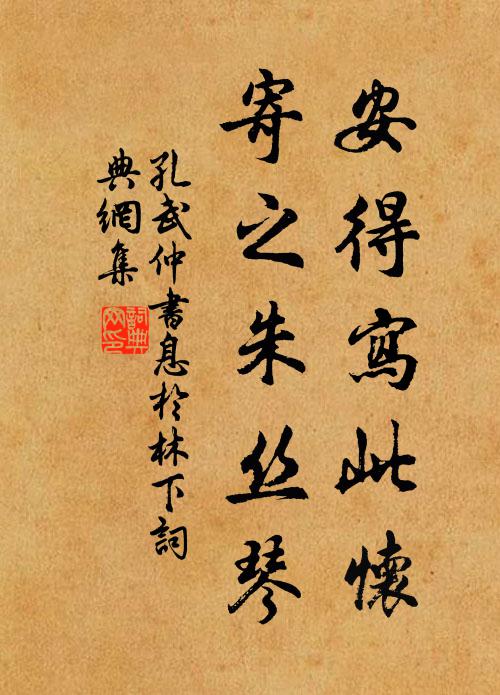 安得寫此懷
寄之朱丝琴
孔武仲書息於林下詞
典網集
詞典網印